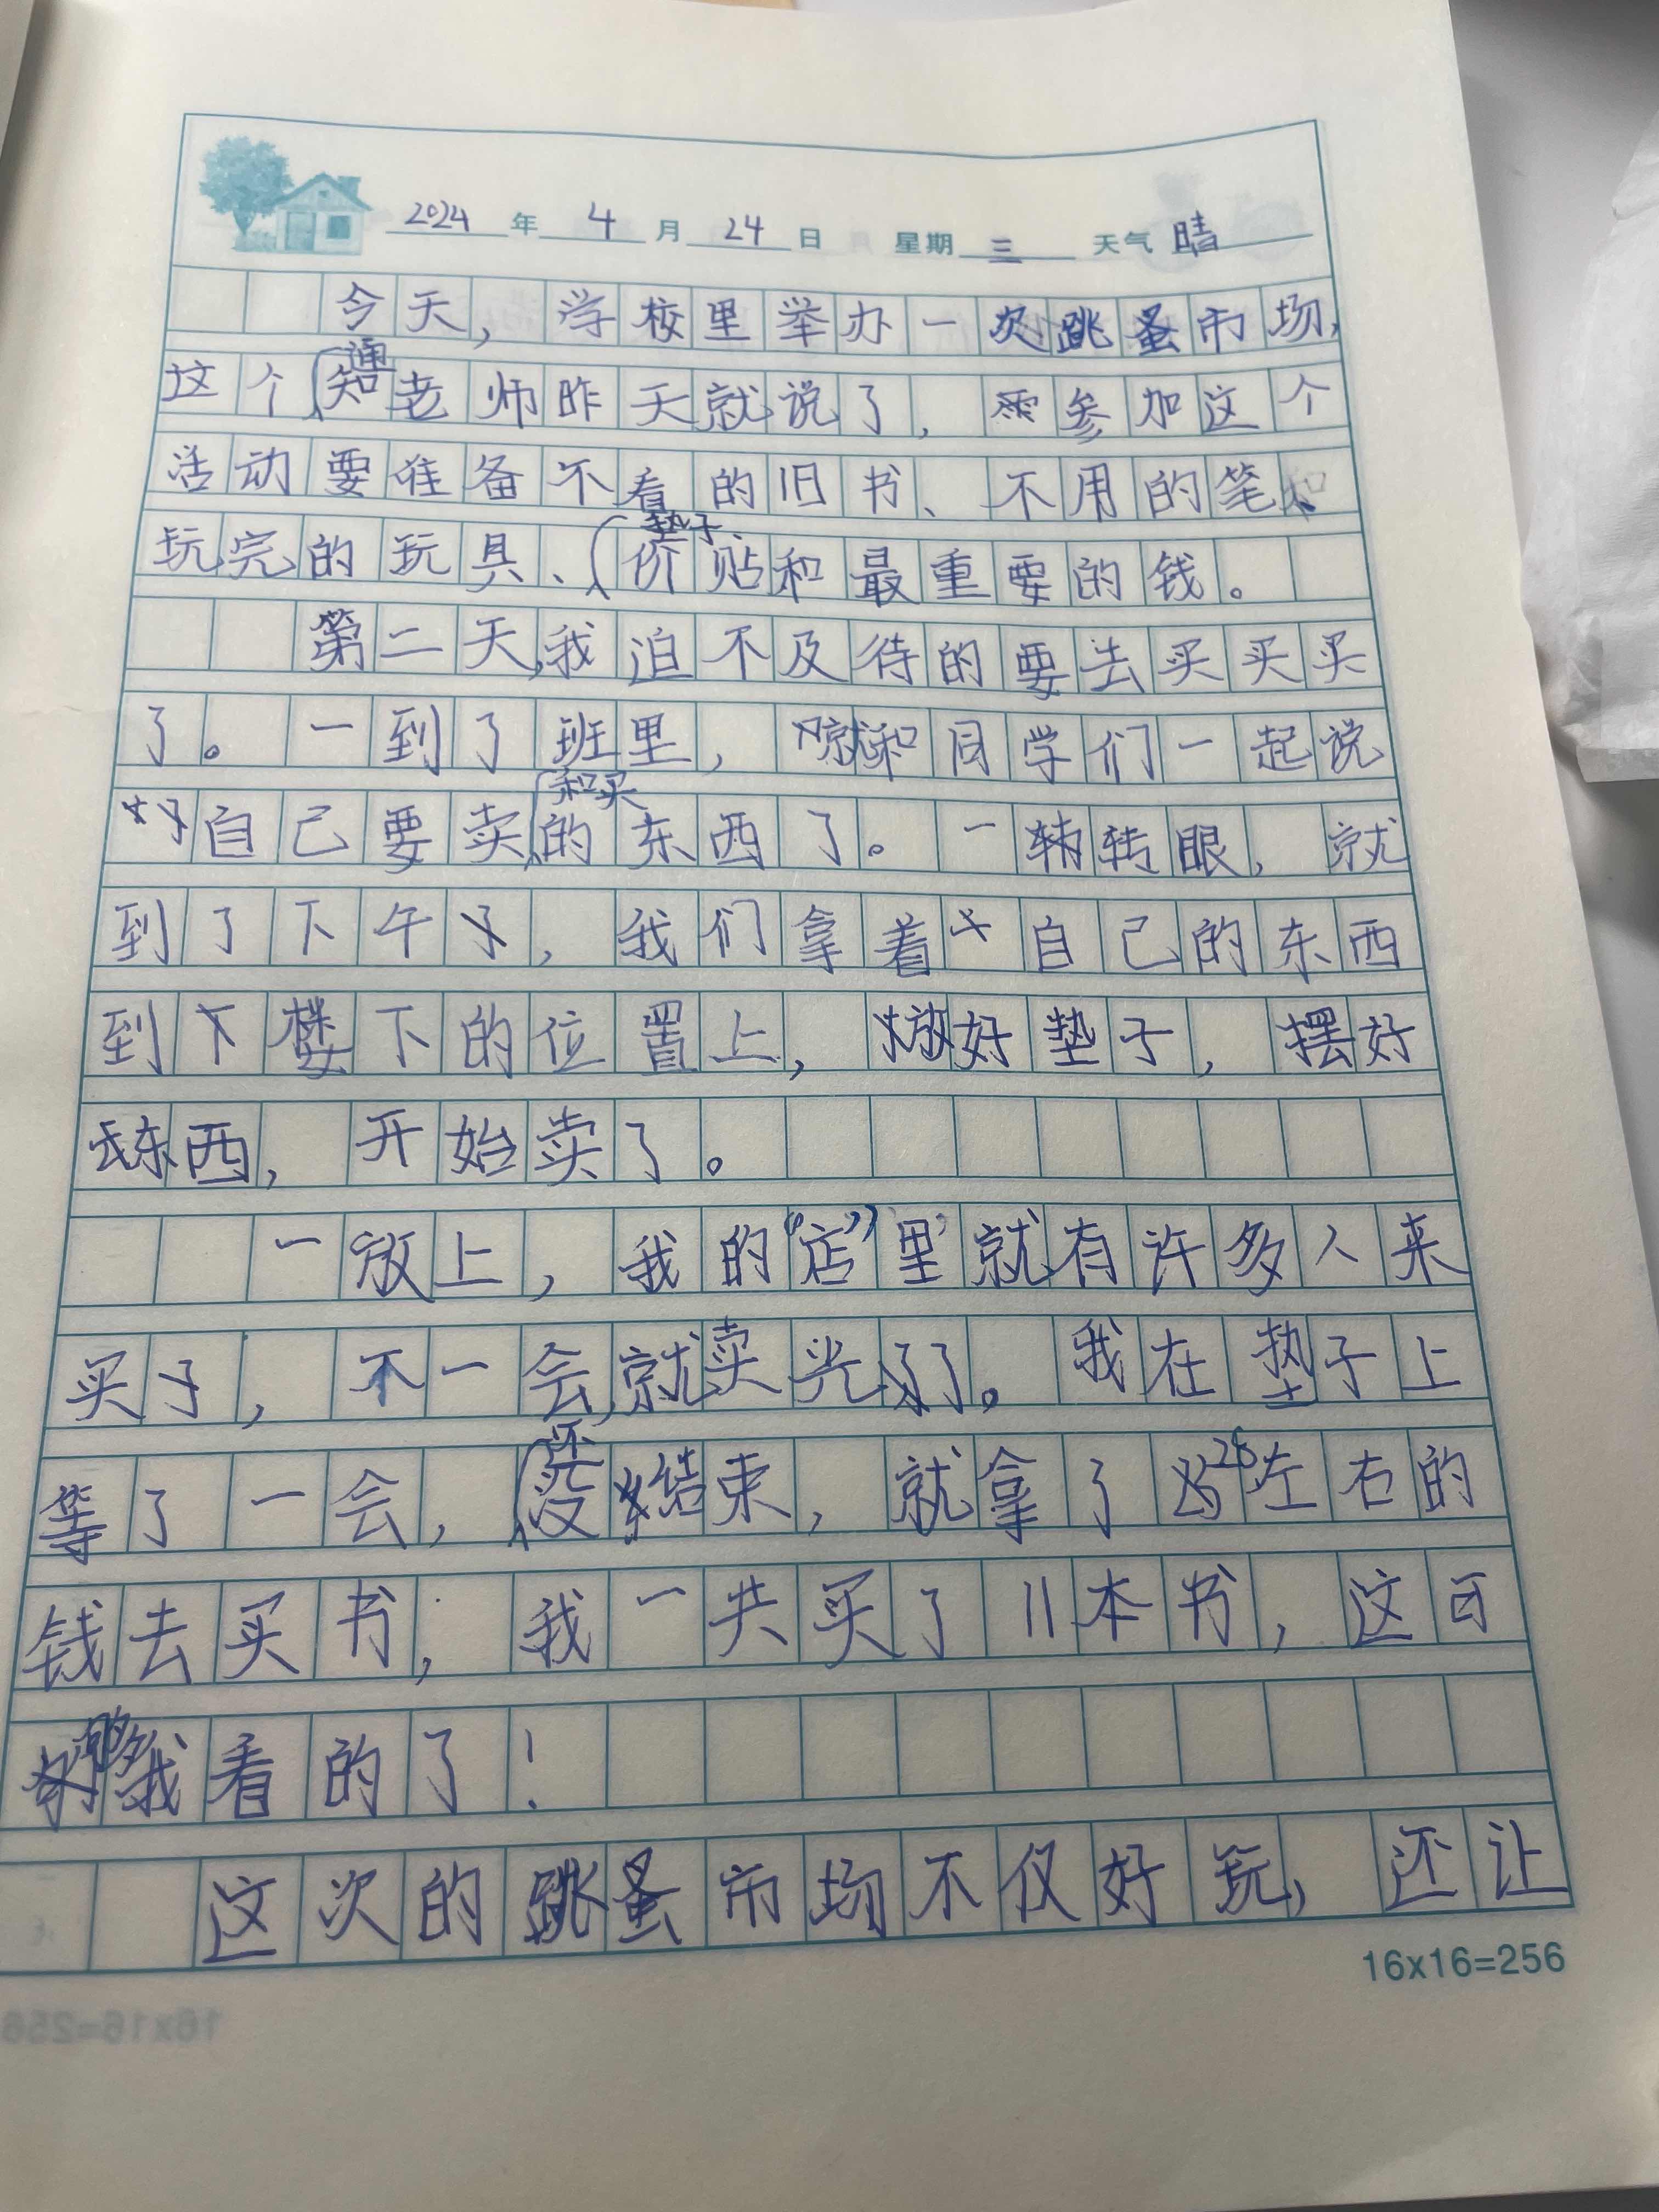 2024年4月24日 星期三 天气晴
今天，学校里举办一次跳蚤市场，
这个通知老师昨天就说了，参加这个
活动要准备不看的旧书、不用的笔、
玩完的玩具、垫子、价贴和最重要的钱。
第二天，我迫不及待的要去买买买
了。一到了班里，就和同学们一起说
自己要卖和买的东西了。一转眼，就
到了下午，我们拿着自己的东西
到楼下的位置上，放好垫子，摆好
东西，开始卖了。
一放上，我的“店”里就有许多人来
买，不一会，就卖光了。我在垫子上
等了一会，还没结束，就拿了28左右的
钱去买书，我一共买了11本书，这可
够我看的了！
这次的跳蚤市场不仅好玩，还让
16x16=256